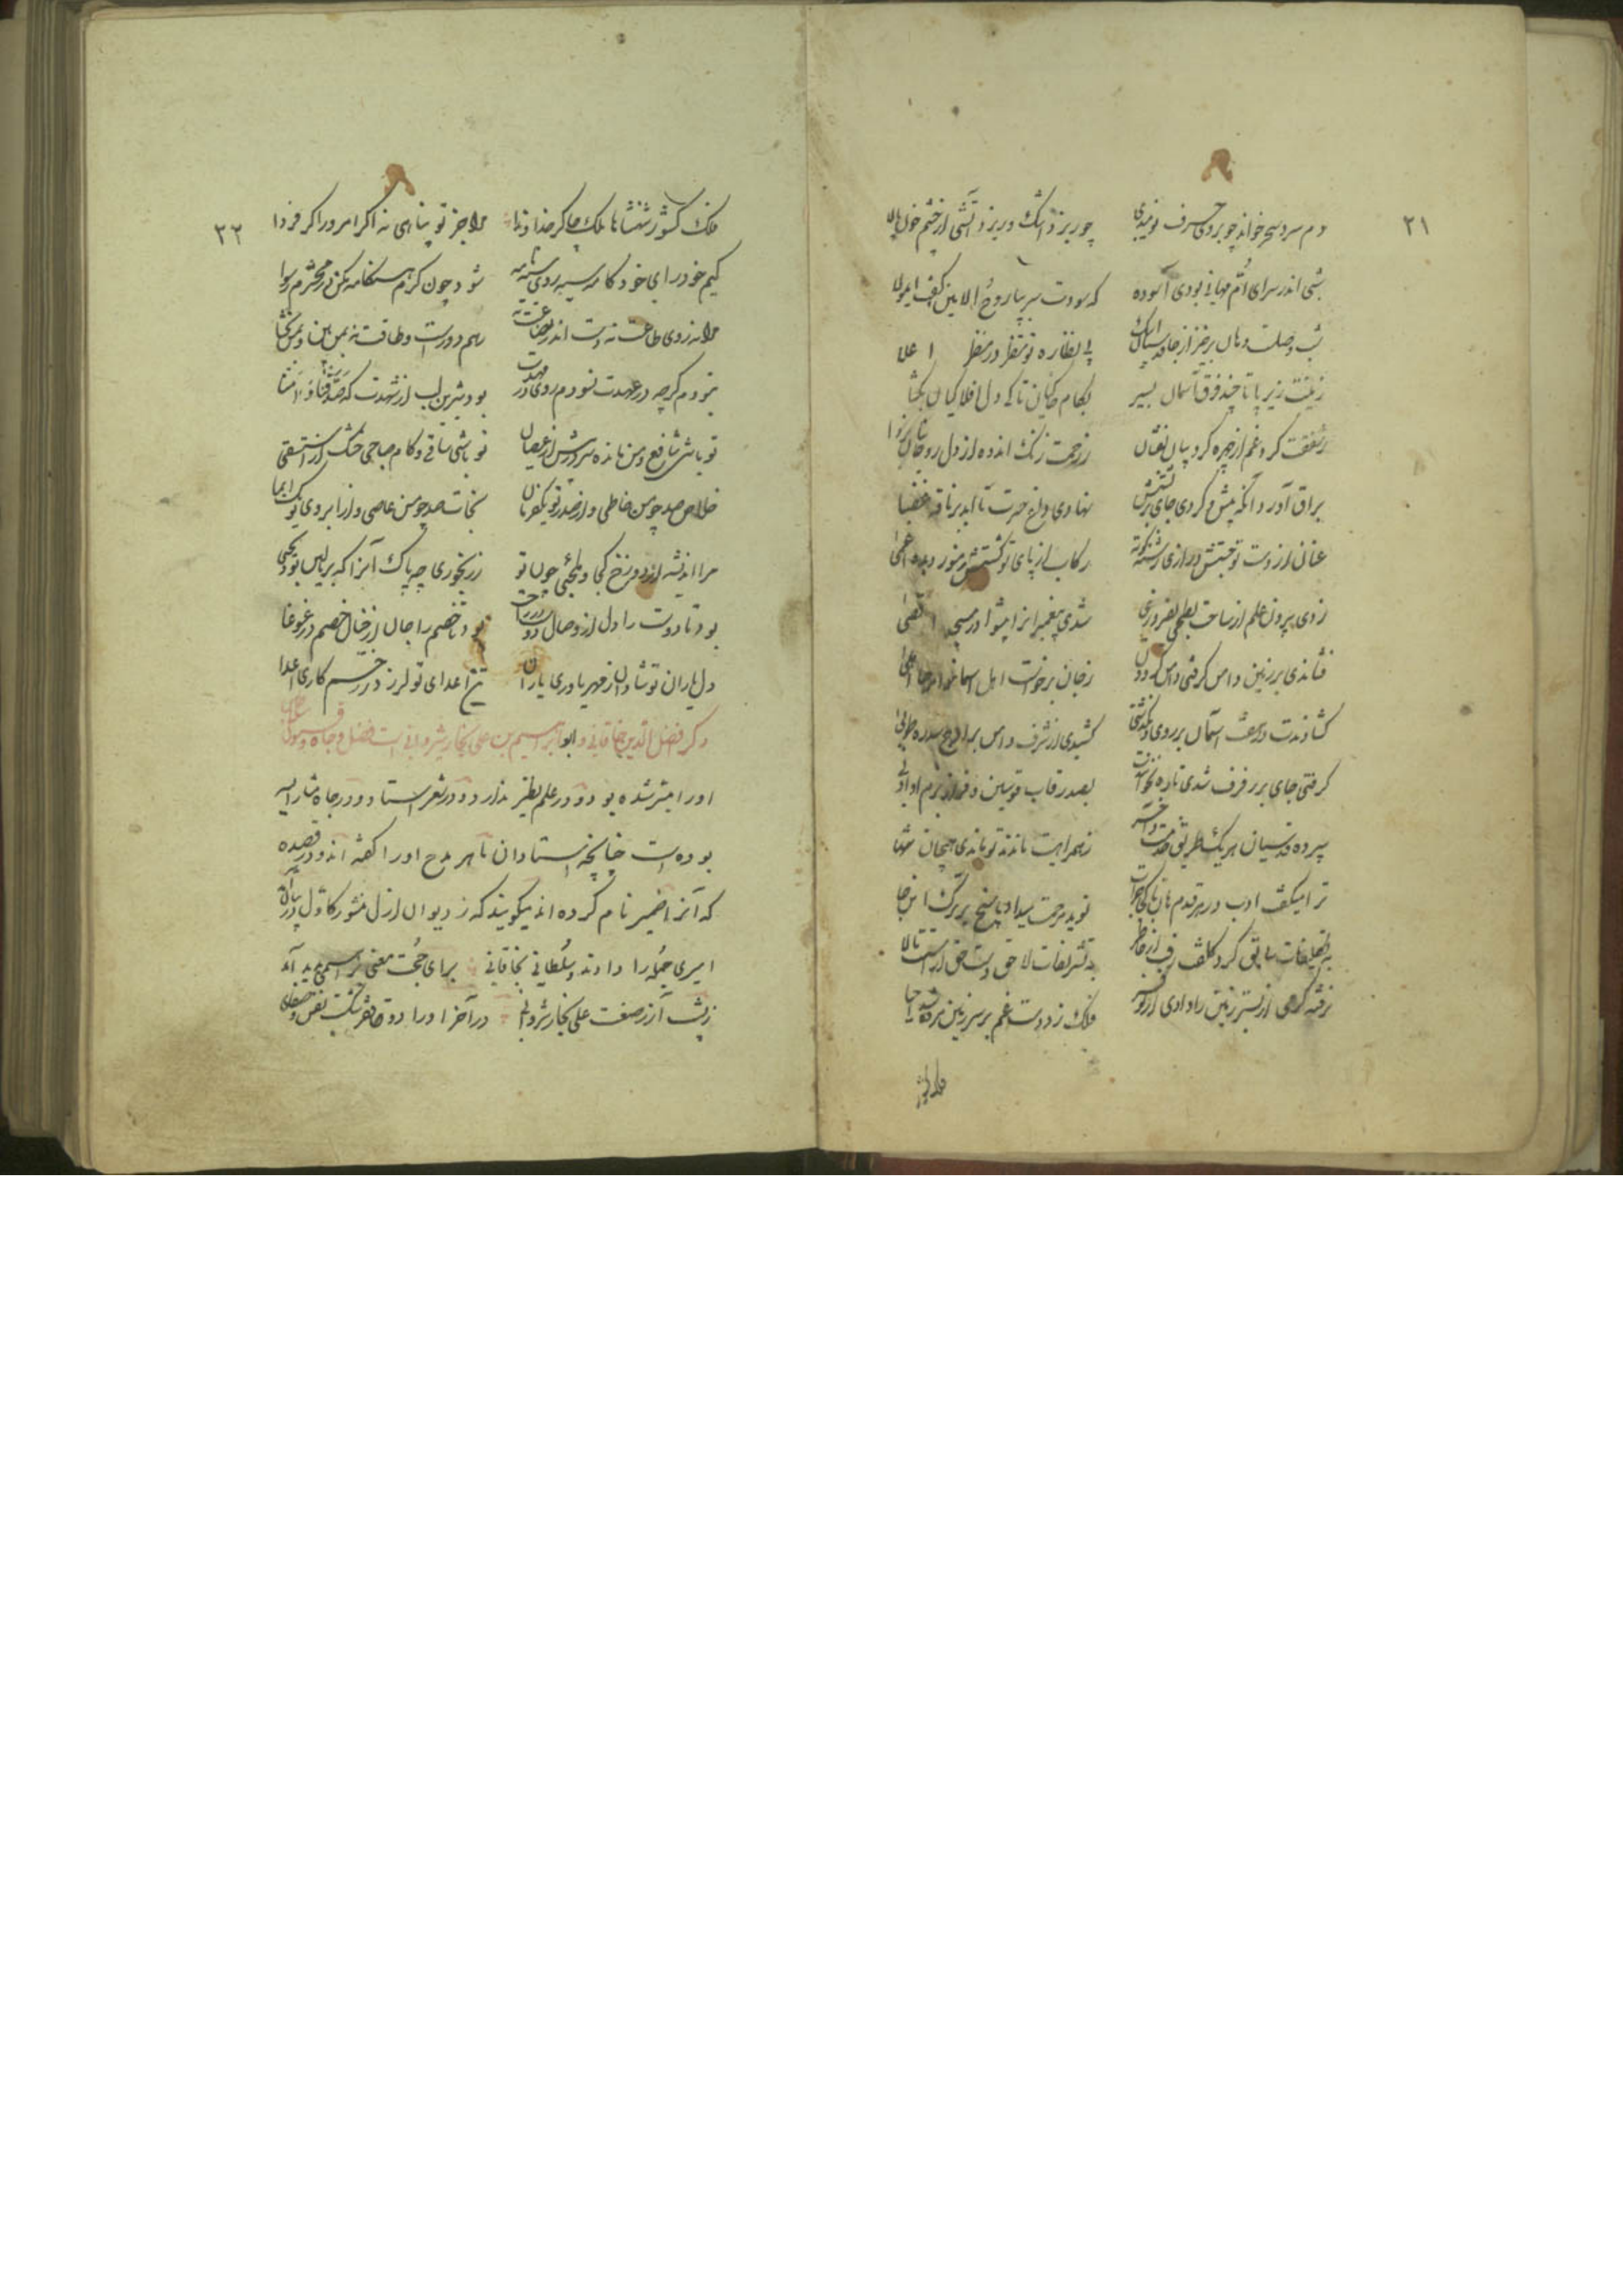 ۲۱
دم سرد سحر خواند چو بر وی حرف نومیدی چو ریزد اشک و ریزد آتشی از چشم خون پالا
شبی اندر سرای ام هانی بودی آسوده که سودت سر بپا روح الامین کای مولا
شب وصلست و هان برخیز از جا پی نظاره تو منتظر در منظر اعلا
زمینت زیر پا تا چند فرق آسمان بسپر بکام خاکیان تا کی دل افلاکیان بخشا
ز شفقت گرد غم از چهره کرو بیان بفشان ز رحمت زنگ اندوه از دل روحانیان بزدا
براق آورد آنگه پیش و کردی جای بر پشتش نهادی داغ حسرت تا ابد بر ناقه عضبا
عنان از دست تو جستش درازی رشته کوته رکاب از پای تو گشتش منور دیده اعمی
زدی بیرون علم از ساحت بطحی بفیروزی شدی پیغمبرانرا پیشوا در مسجد اقصی
فشاندی بر زمین دامن گرفتی دامن گردون ز جان برخواست اهل آسمانرا مرحبا اهلا
گشادندت در هشت آسمان بر روی و بگذشتی کشیدی از شرف دامن بر اوج سدره و طوبی
گرفتی جای بر رفرف شدی تا بصدر قاب قوسین و فراز بزم او ادنی
سپرده قدسیان هر یک طریق خدمت و آخر ز همراهیت ماندند تو ماندی همچنان تنها
ترا میگفت ادب در هر قدم هان نوید مرحمت میداد پاسخ برترک اینجا
به تکلیفات سابق گرد کلفت رفت از خاطر به تشریفات لاحق دست حق آراستت بالا
نرفته گرمی از بستر زمین را دادی از نو فر فلک زد دست غم بر سر زمین
فلک
۲۲
فلک کشور شهنشاها ملک چاکر خداوندا مرا جز تو پناهی نه اگر امروز اگر فردا
کیم خود رای خود کامه سیه روی سیه نامه شود چون گرم هنگامه مکن در محشرم رسوا
مرا نه زوی طاعت نه دست اندر بضاعت نه رهم دورست و طاقت نه بمن بین و بمن بخشا
نبودم گرچه در عهدت نسودم روی در مهدت بود شیرین لب از شهدت که صدقنا و آمنا
تو باشی شافع و من مانده سر در پیش از عصیان تو باشی ساقی و کام چو من خشک از استسقی
خلاص صد چو من خاطی و از صدر تو یکفرمان نجات صد چو من عاصی و از ابروی تو یک ایما
مرا اندیشه از دوزخ کی و ملجئی چون تو ز رنجوری چه باک آنرا که بر بالین بود عیسی
بود تا دوست را دل از وصال دوست در راحت بود تا خصم را جان از خیال خصم در غوغا
دل یاران تو شادان ز مهر یاوری یاران تن اعدای تو لرزد ز زخم کاری اعدا
ذکر افضل الدین خاقانی و ابو ابراهیم بن علی نجار شیروانی است فضل و جاه و قبول
او را میسر شده بود و در علم نظیر ندارد و در شعر استاد و در جاه مشار الیه
بوده است چنانچه استادان ماهر مدح او را گفته اند و در قصیده
که آنرا ضمیر نام کرده اند میگویند که ز دیوان ازل منشور کاول
امیری جمله را دادند و سلطانی بخاقانی برای حجت معنی براهیمی پدید آمد
ز پشت آزر صنعت علی نجار شروانی در آخر او را ذوق فقر و شکست نفس و صفای